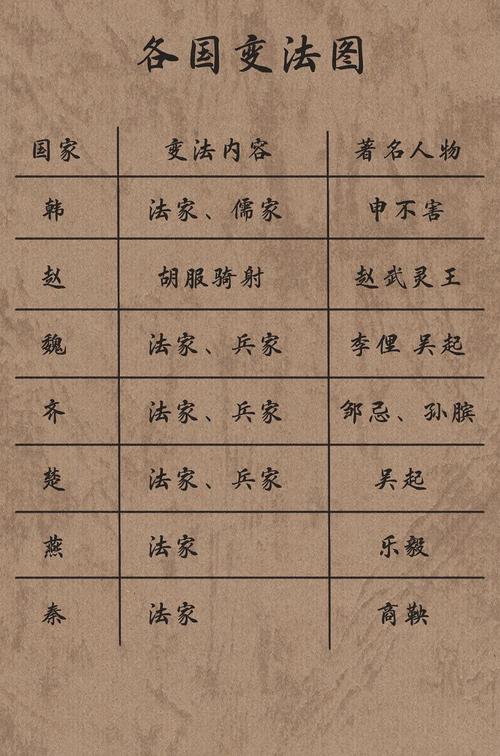 各国变法图
国家 变法内容 著名人物
韩 法家、儒家 申不害
赵 胡服骑射 赵武灵王
魏 法家、兵家 李俚 吴起
齐 法家、兵家 邹忌、孙膑
楚 法家、兵家 吴起
燕 法家 乐毅
秦 法家 商鞅